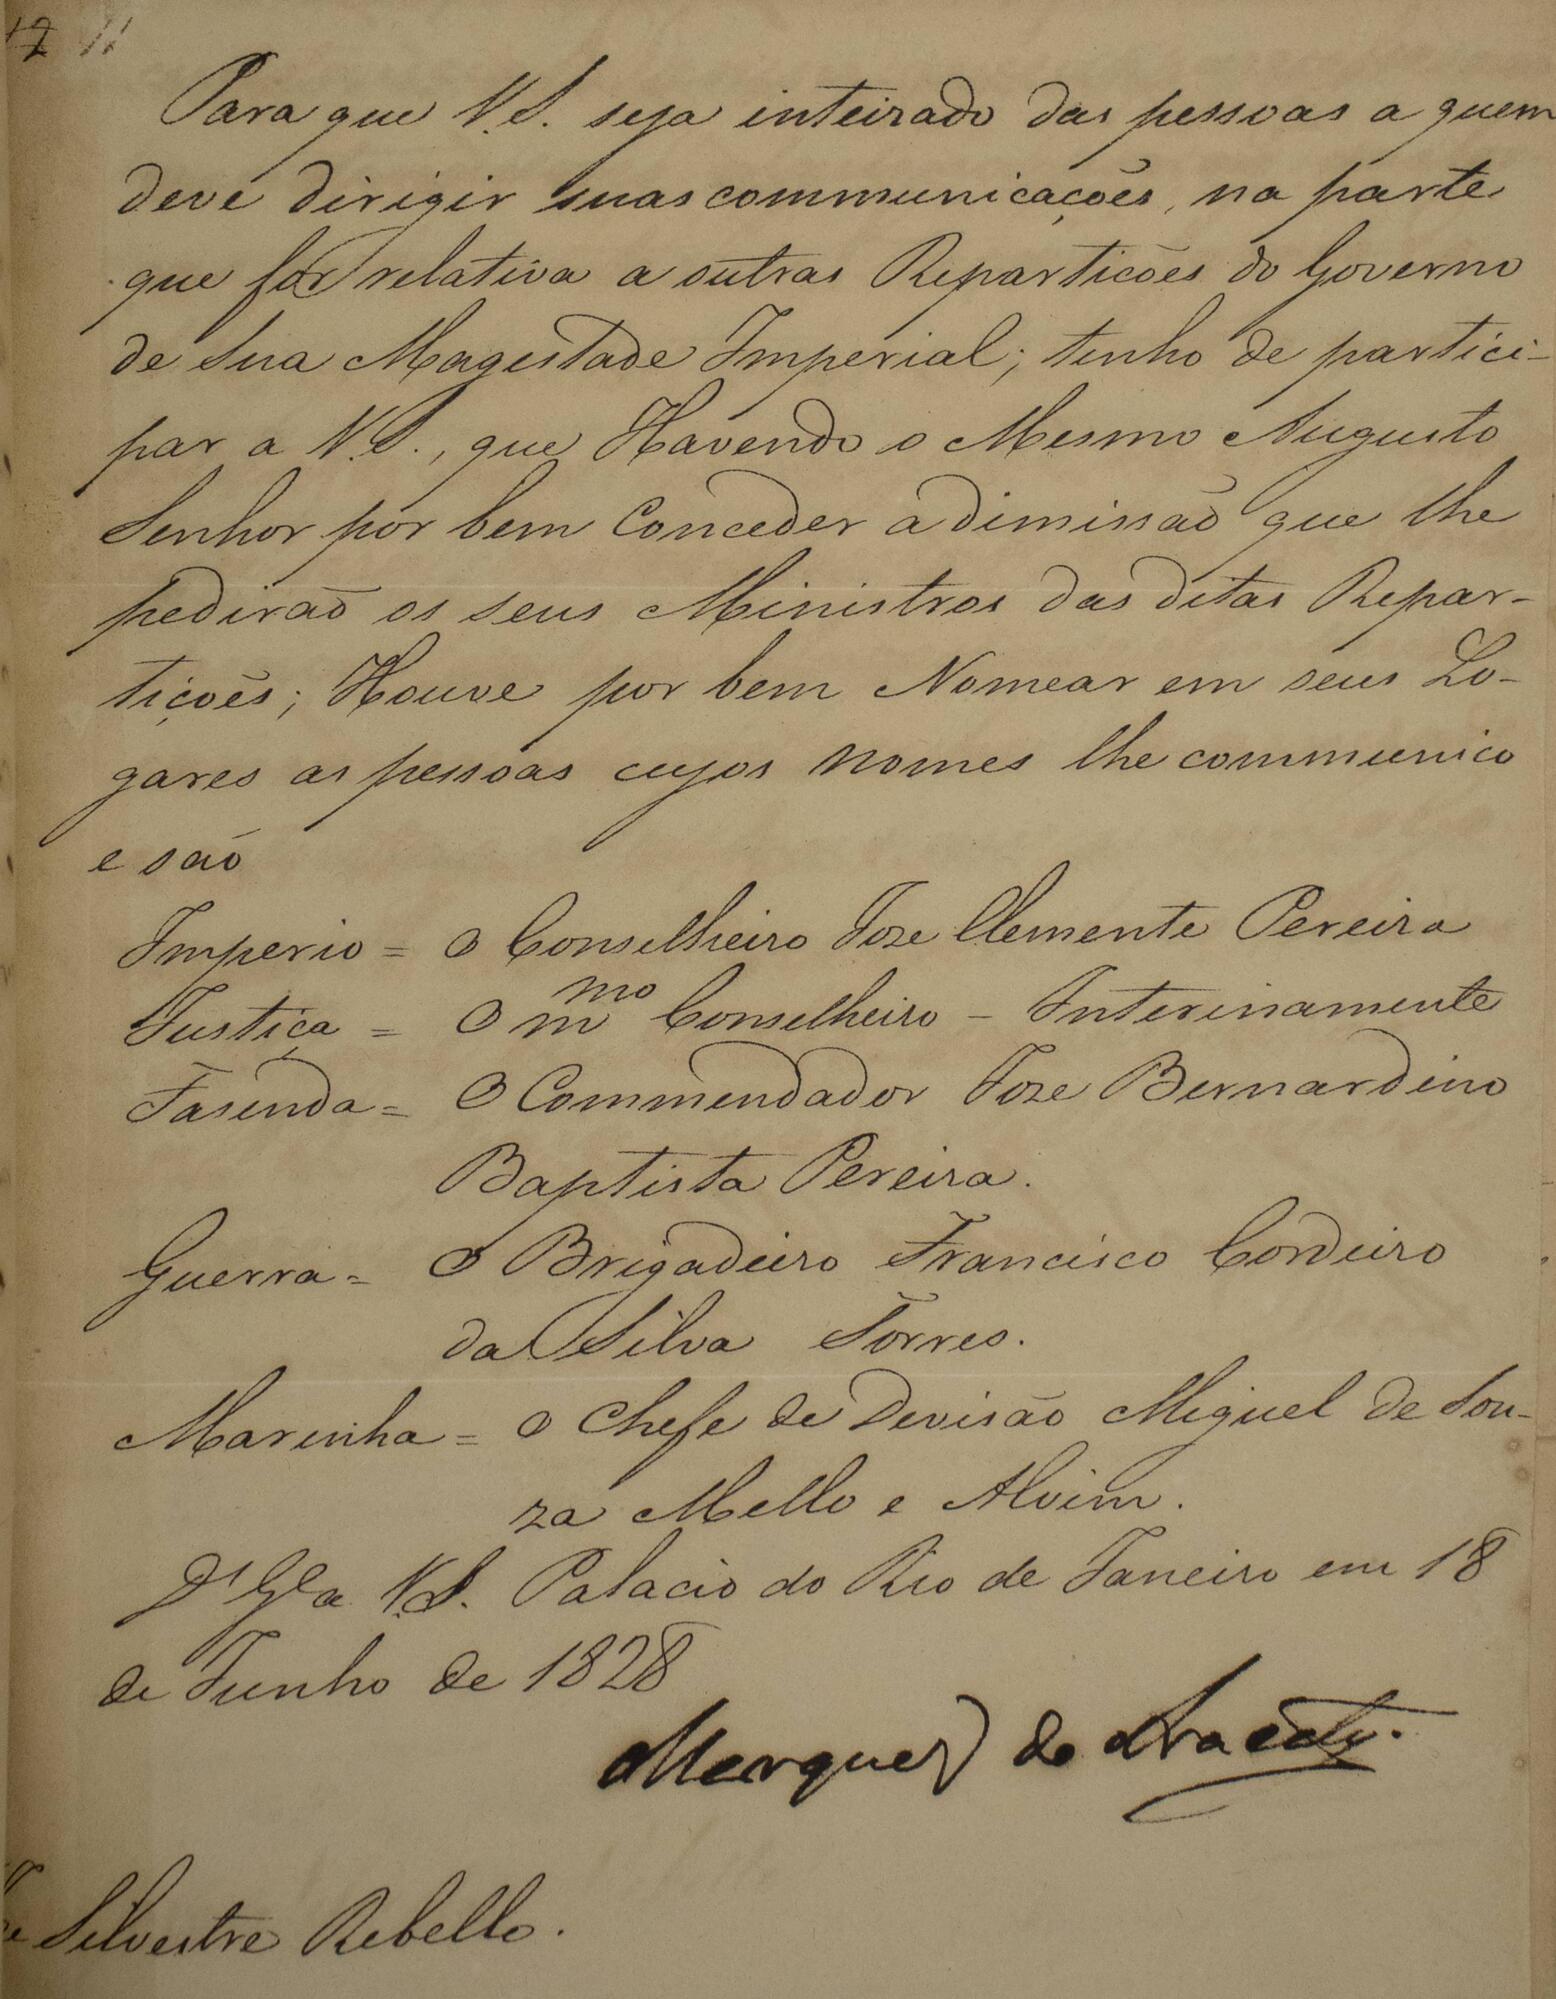 12 11
Para que V.S. seja inteirado das pessoas a quem
deve dirigir suas communicações, na parte
que for relativa a outras Repartições do Governo
de Sua Magestade Imperial; tenho de partici-
par a V.S., que Havendo o Mesmo Augusto
Senhor por bem Conceder a dimissão que lhe
pedirão os seus Ministros das ditas Repar-
tições; Houve por bem Nomear em seus Lo-
gares as pessoas cujos nomes lhe communico
e são
Imperio = O Conselheiro Joze Clemente Pereira
Justiça = O mmo Conselheiro - Interinamente
Fasenda = O Commendador Joze Bernardino
Baptista Pereira.
Guerra = O Brigadeiro Francisco Cordeiro
da Silva Torres.
Marinha = O Chefe de Devisão Miguel de Sou-
za Mello e Alvim.
Ds Gde a V.S. Palacio do Rio de Janeiro em 18
de Junho de 1828
Marquez de Aracaty.
Silvestre Rebello.